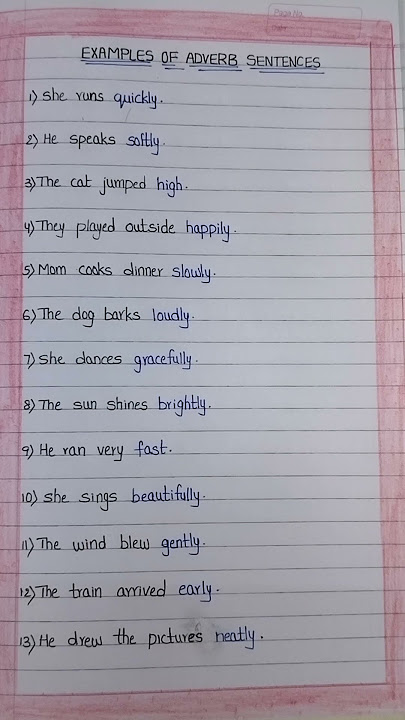 Page No.
EXAMPLES OF ADVERB SENTENCES
1) She runs quickly.
2) He speaks softly.
3) The cat jumped high.
4) They played outside happily.
5) Mom cooks dinner slowly.
6) The dog barks loudly.
7) She dances gracefully.
8) The sun shines brightly.
9) He ran very fast.
10) She sings beautifully.
11) The wind blew gently.
12) The train arrived early.
13) He drew the pictures neatly.